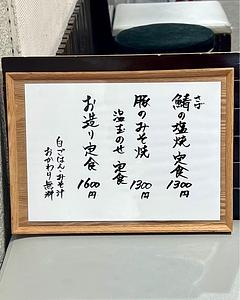 さば
鯖の塩焼定食
1300円
豚のみそ焼
温玉のせ定食
1300円
お造り定食
1600円
白ごはん・みそ汁
おかわり無料